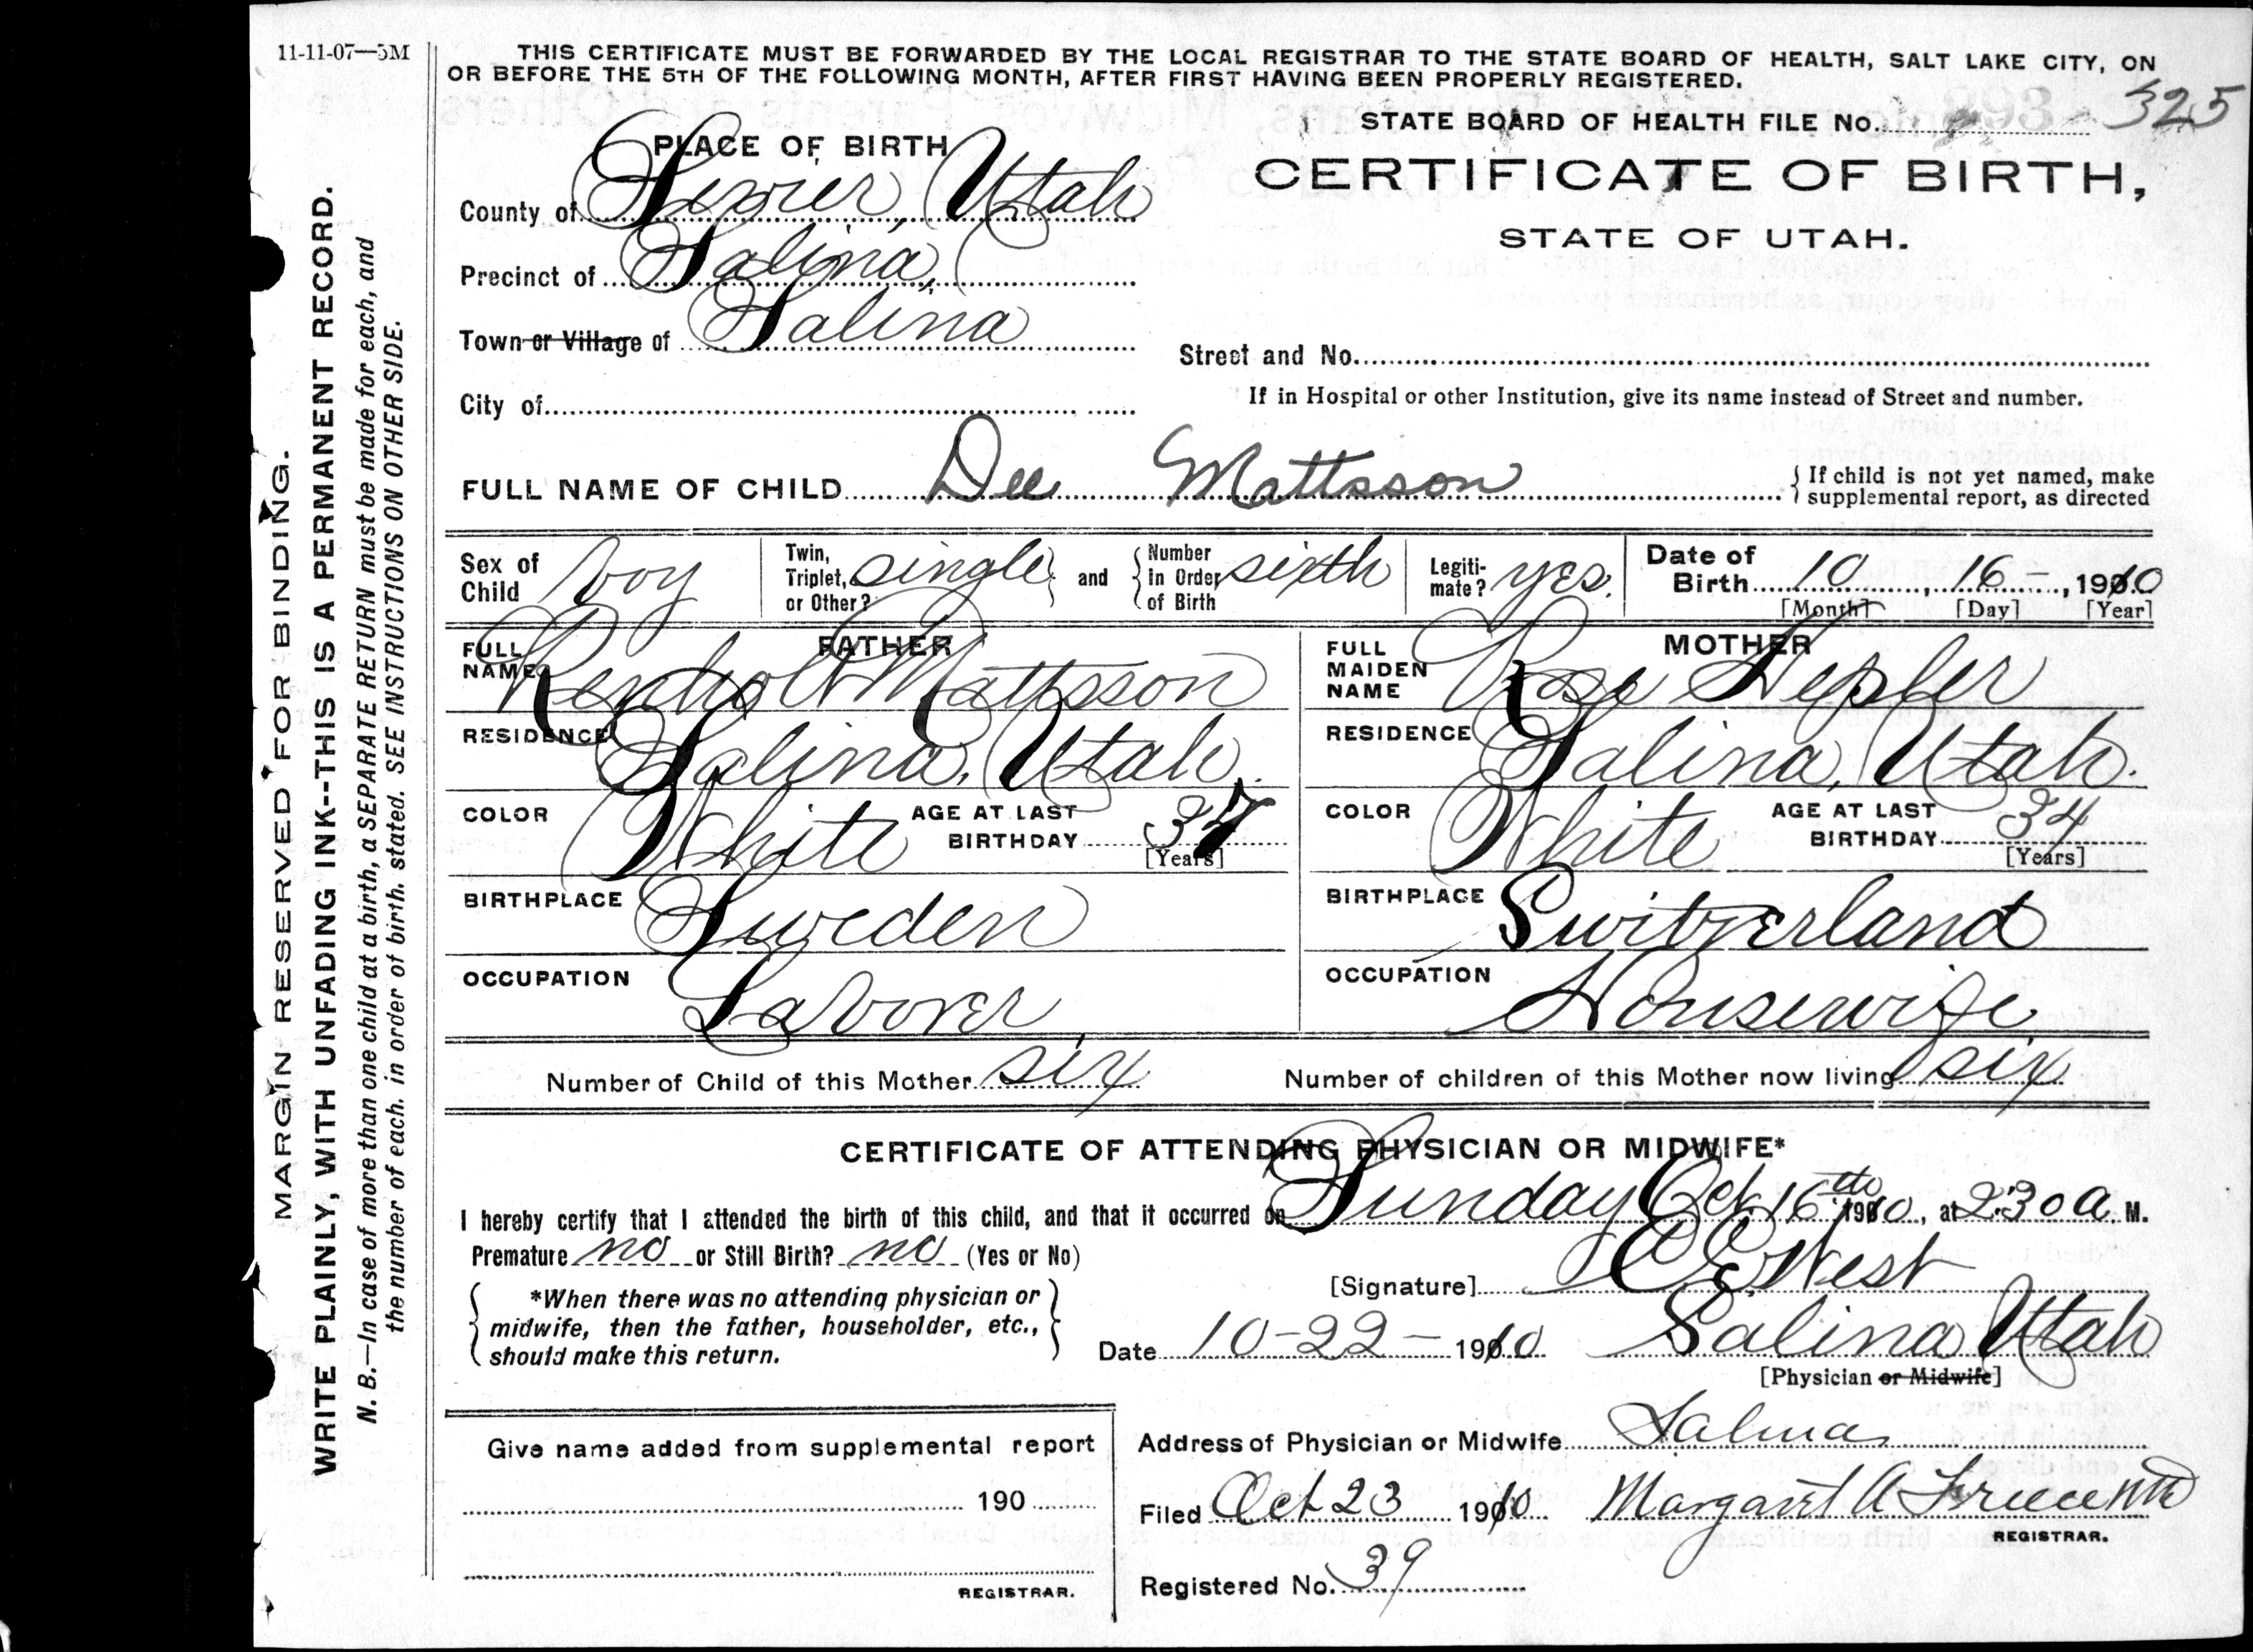 11-11-07—5M
THIS CERTIFICATE MUST BE FORWARDED BY THE LOCAL REGISTRAR TO THE STATE BOARD OF HEALTH, SALT LAKE CITY, ON
OR BEFORE THE 5TH OF THE FOLLOWING MONTH, AFTER FIRST HAVING BEEN PROPERLY REGISTERED.
STATE BOARD OF HEALTH FILE No. 325
CERTIFICATE OF BIRTH,
STATE OF UTAH.
PLACE OF BIRTH
County of Sevier, Utah
Precinct of Salina,
Town or Village of Salina
Street and No.
City of
If in Hospital or other Institution, give its name instead of Street and number.
FULL NAME OF CHILD Dee Mattsson
If child is not yet named, make
supplemental report, as directed
Sex of Child boy
Twin, Triplet, or Other? single and Number in Order of Birth sixth
Legitimate? yes.
Date of Birth 10, 16-, 1910
[Month] [Day] [Year]
FATHER
FULL NAME Mattsson
RESIDENCE Salina, Utah.
COLOR White AGE AT LAST BIRTHDAY 37
[Years]
BIRTHPLACE Sweden
OCCUPATION Laborer
MOTHER
FULL MAIDEN NAME Rose Hepler
RESIDENCE Salina, Utah.
COLOR White AGE AT LAST BIRTHDAY 34
[Years]
BIRTHPLACE Switzerland
OCCUPATION Housewife
Number of Child of this Mother six
Number of children of this Mother now living six
CERTIFICATE OF ATTENDING PHYSICIAN OR MIDWIFE*
I hereby certify that I attended the birth of this child, and that it occurred on Sunday Oct. 16th 1910, at 2:30 a. M.
Premature no or Still Birth? no (Yes or No)
[Signature] West
*When there was no attending physician or
midwife, then the father, householder, etc.,
should make this return.
Date 10-22- 1910
Salina Utah
[Physician or Midwife]
Give name added from supplemental report
190
REGISTRAR.
Address of Physician or Midwife Salina
Filed Oct 23 1910 Margaret A
REGISTRAR.
Registered No. 39
MARGIN RESERVED FOR BINDING.
WRITE PLAINLY, WITH UNFADING INK--THIS IS A PERMANENT RECORD.
N. B.—In case of more than one child at a birth, a SEPARATE RETURN must be made for each, and
the number of each. in order of birth. stated. SEE INSTRUCTIONS ON OTHER SIDE.